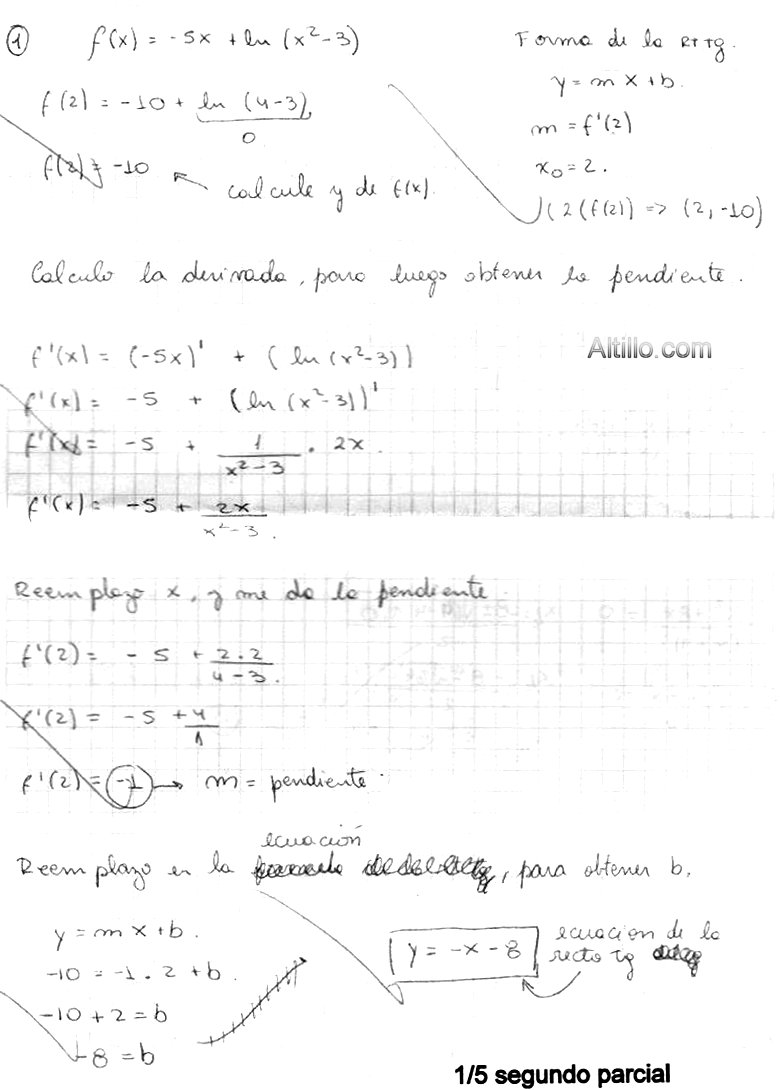 1 f(x) = -5x + ln (x²-3)
Forma de la RT tg.
y = m x + b.
m = f'(2)
x₀ = 2.
(2 (f(2)) => (2, -10)
f(2) = -10 + ln (4-3)
0
f(2) = -10
calcule y de f(x).
Calculo la derivada, para luego obtener la pendiente.
f'(x) = (-5x)' + (ln (x²-3))
Altillo.com
f'(x) = -5 + (ln (x²-3))'
f'(x) = -5 + 1/(x²-3) . 2x.
f'(x) = -5 + 2x/(x²-3).
Reemplazo x, y me da la pendiente.
f'(2) = -5 + 2.2/(4-3).
f'(2) = -5 + 4/1
f'(2) = -1 → m = pendiente.
ecuación
Reemplazo en la , para obtener b.
y = m x + b.
-10 = -1 . 2 + b.
-10 + 2 = b
-8 = b
y = -x - 8
ecuacion de la
recta tg
1/5 segundo parcial